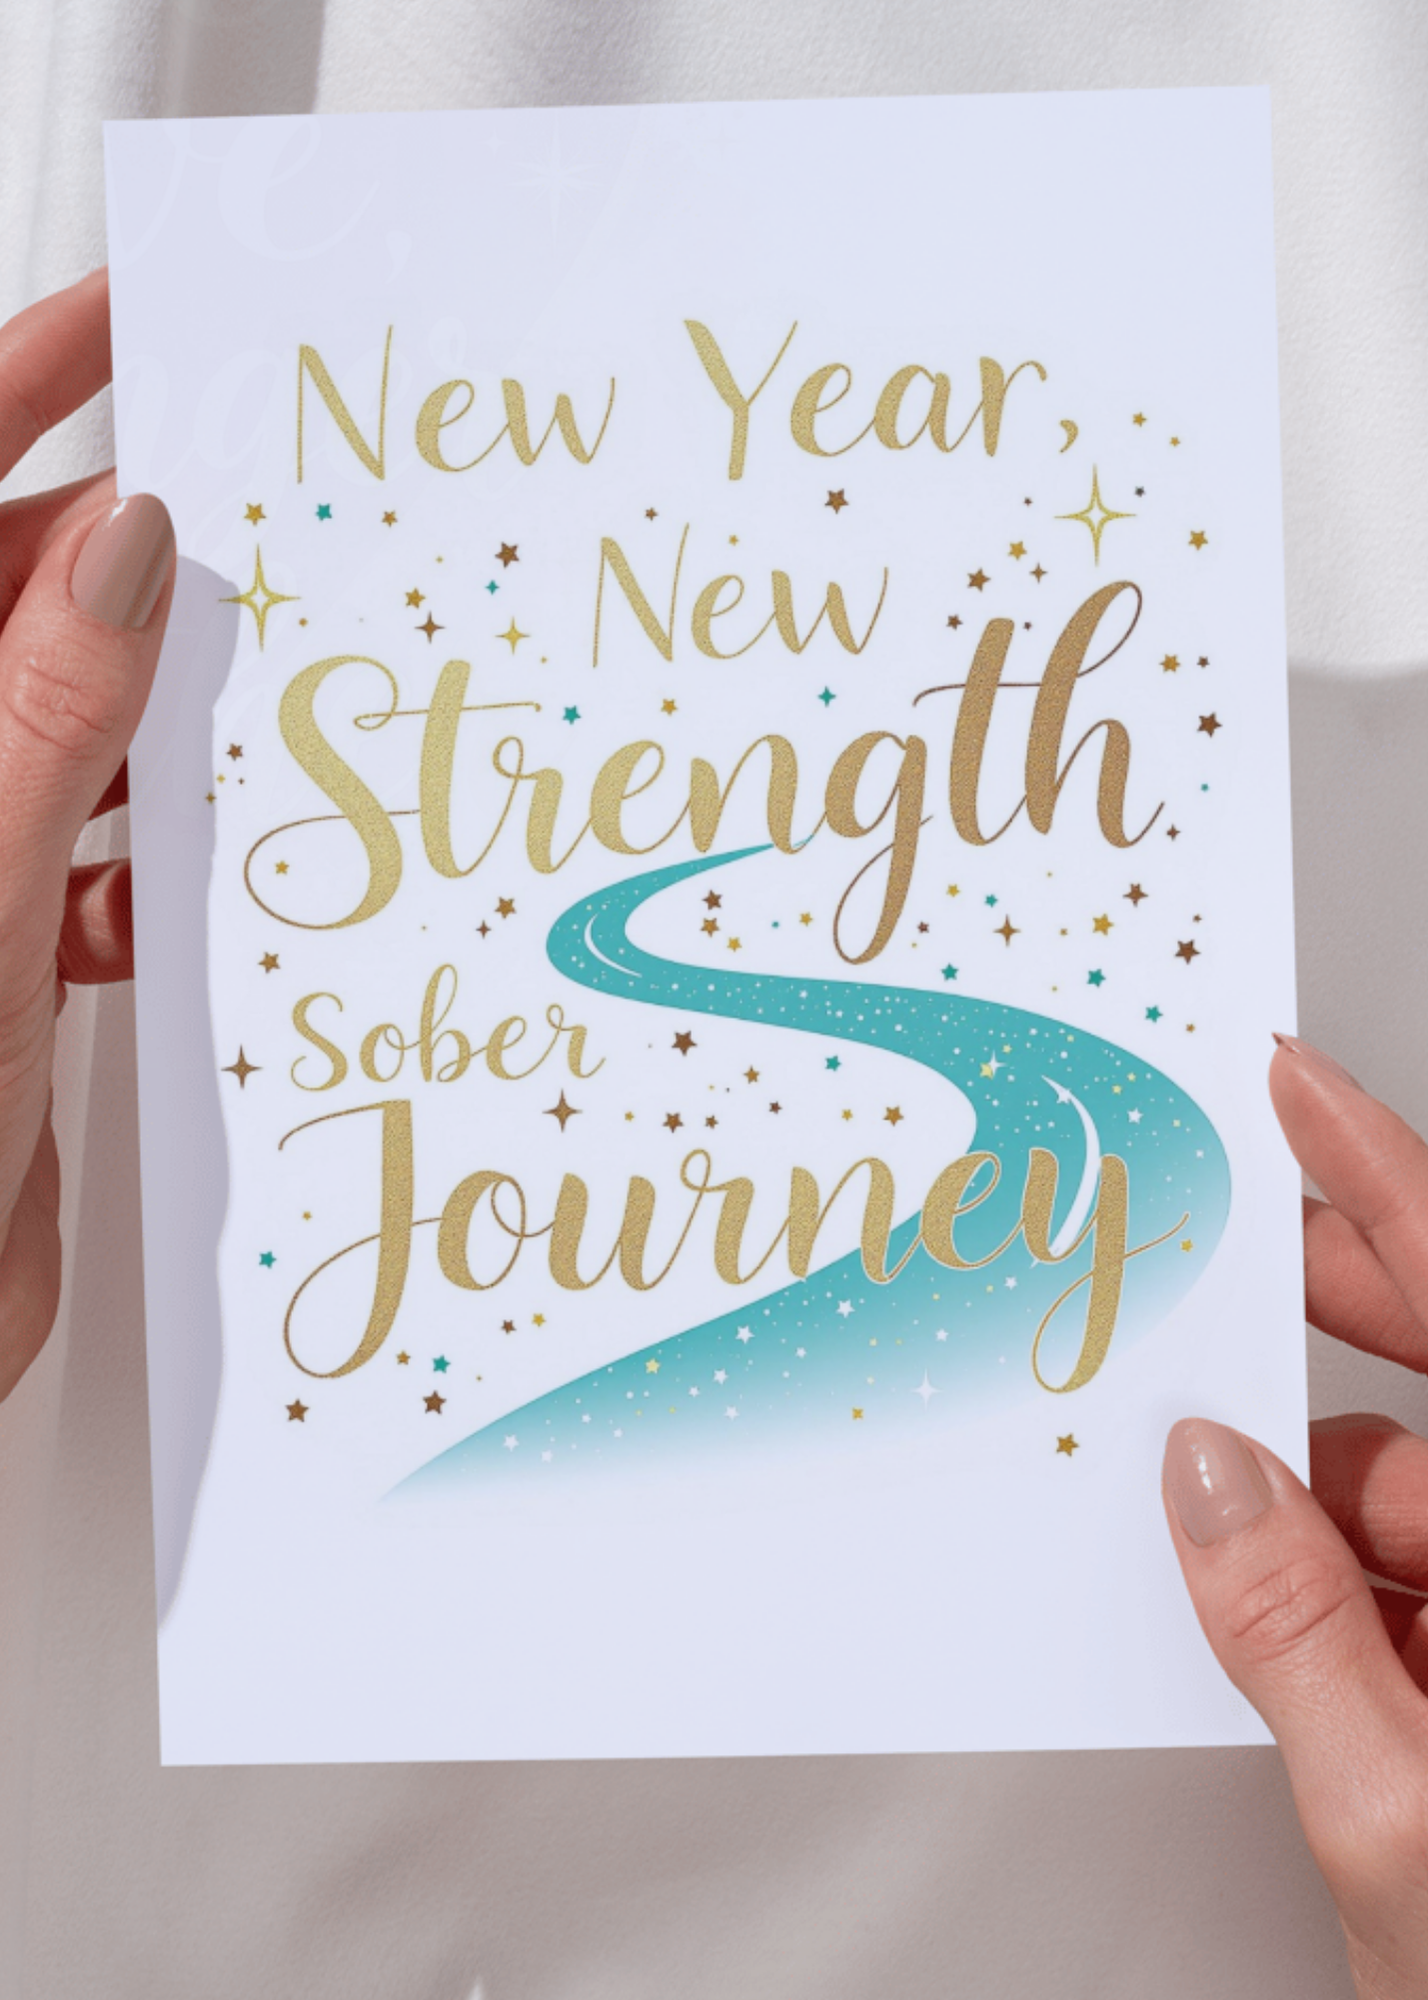 New Year,
New
Strength
Sober
Journey